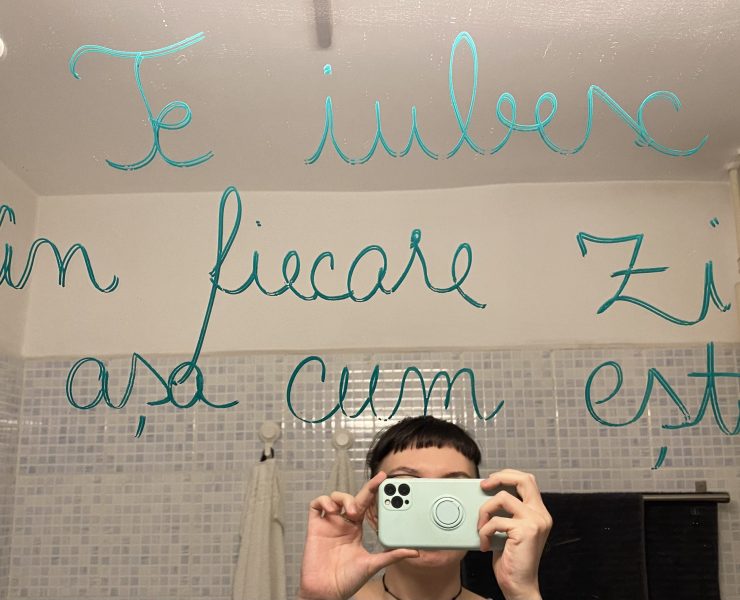 Te iubesc
în fiecare Zi
așa cum eșt